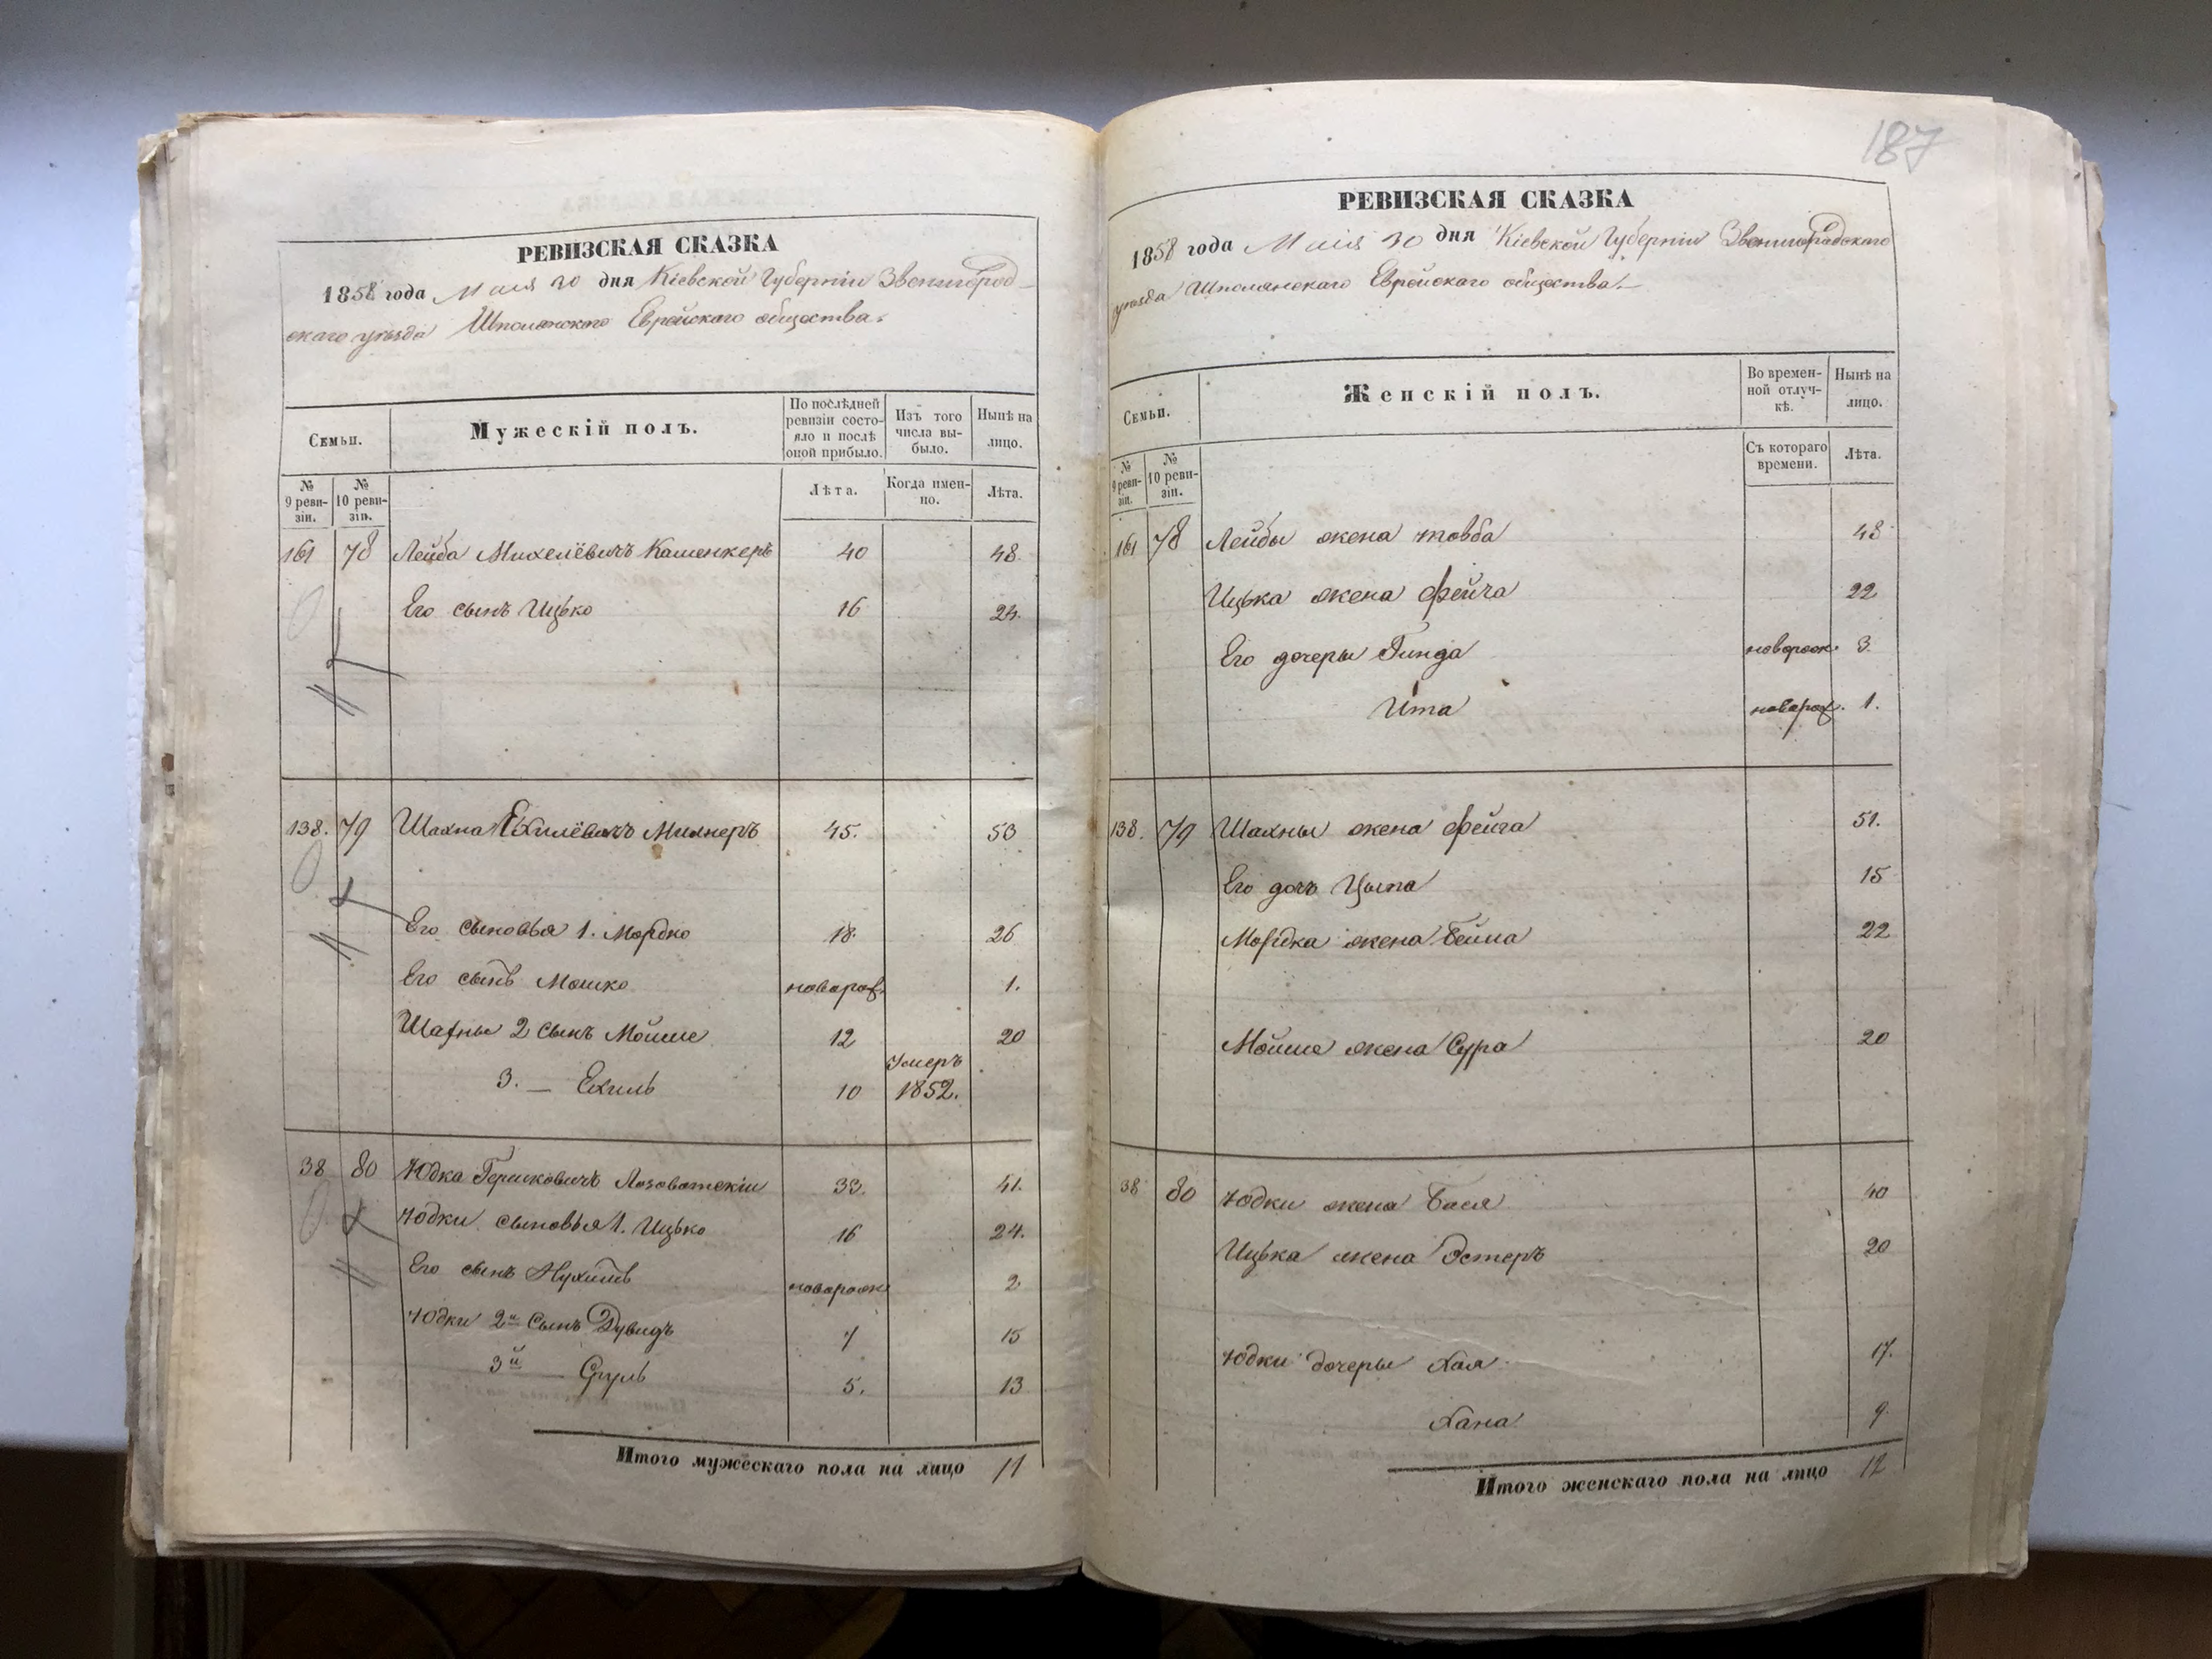 РЕВИЗСКАЯ СКАЗКА
1858 года Маія 20 дня Кіевской Губерніи Звенигород-
скаго уѣзда Шполянского Еврейского общества.
Семьи.
Мужескій полъ.
По послѣдней ревизіи состояло и послѣ оной прибыло.
Изъ того числа выбыло.
Нынѣ на лицо.
№ 9 ревизіи.
№ 10 ревизіи.
Лѣта.
Когда именно.
Лѣта.
161 78 Лейба Михелёвичъ Каменкеръ 40 48
Его сынъ Ицько 16 24.
138. 79 Шахна Ехилёвичъ Милнеръ 45. 53
Его сыновья 1. Мордко 18 26
Его сынъ Мошко новорож. 1.
Шахны 2 сынъ Мойше 12 20
3. — Ехиль 10 Умеръ 1852.
38 80 Юдка Гершковичъ Лозоватскій 33. 41.
Юдки сыновья 1. Ицько 16 24.
Его сынъ Нухимъ новорож 2
Юдки 2й Сынъ Дувидъ 7 15
3й — Сруль 5. 13
Итого мужескаго пола на лицо 11
187
РЕВИЗСКАЯ СКАЗКА
1858 года Маія 20 дня Кіевской Губерніи Звенигородскаго
уѣзда Шполянскаго Еврейскаго общества.
Семьи.
Женскій полъ.
Во временной отлучкѣ.
Нынѣ на лицо.
№ 9 ревизіи.
№ 10 ревизіи.
Съ котораго времени.
Лѣта.
161 78 Лейбы жена Товба 48
Ицька жена Фейга 22
Его дочеры Гинда новорож. 3.
Ита новорож. 1.
138. 79 Шахны жена Фейга 51.
Его дочь Цыпа 15
Мордка жена Бейла 22
Мойше жена Сура 20
38 80 Юдки жена Бася 40
Ицька жена Эстеръ 20
Юдки дочеры Хая 17.
Хана 9
Итого женскаго пола на лицо 12